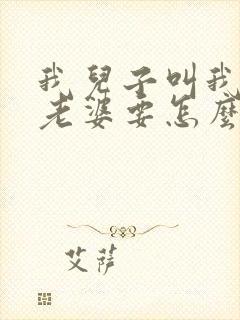 我兒子叫我
老婆要怎麼
艾薩